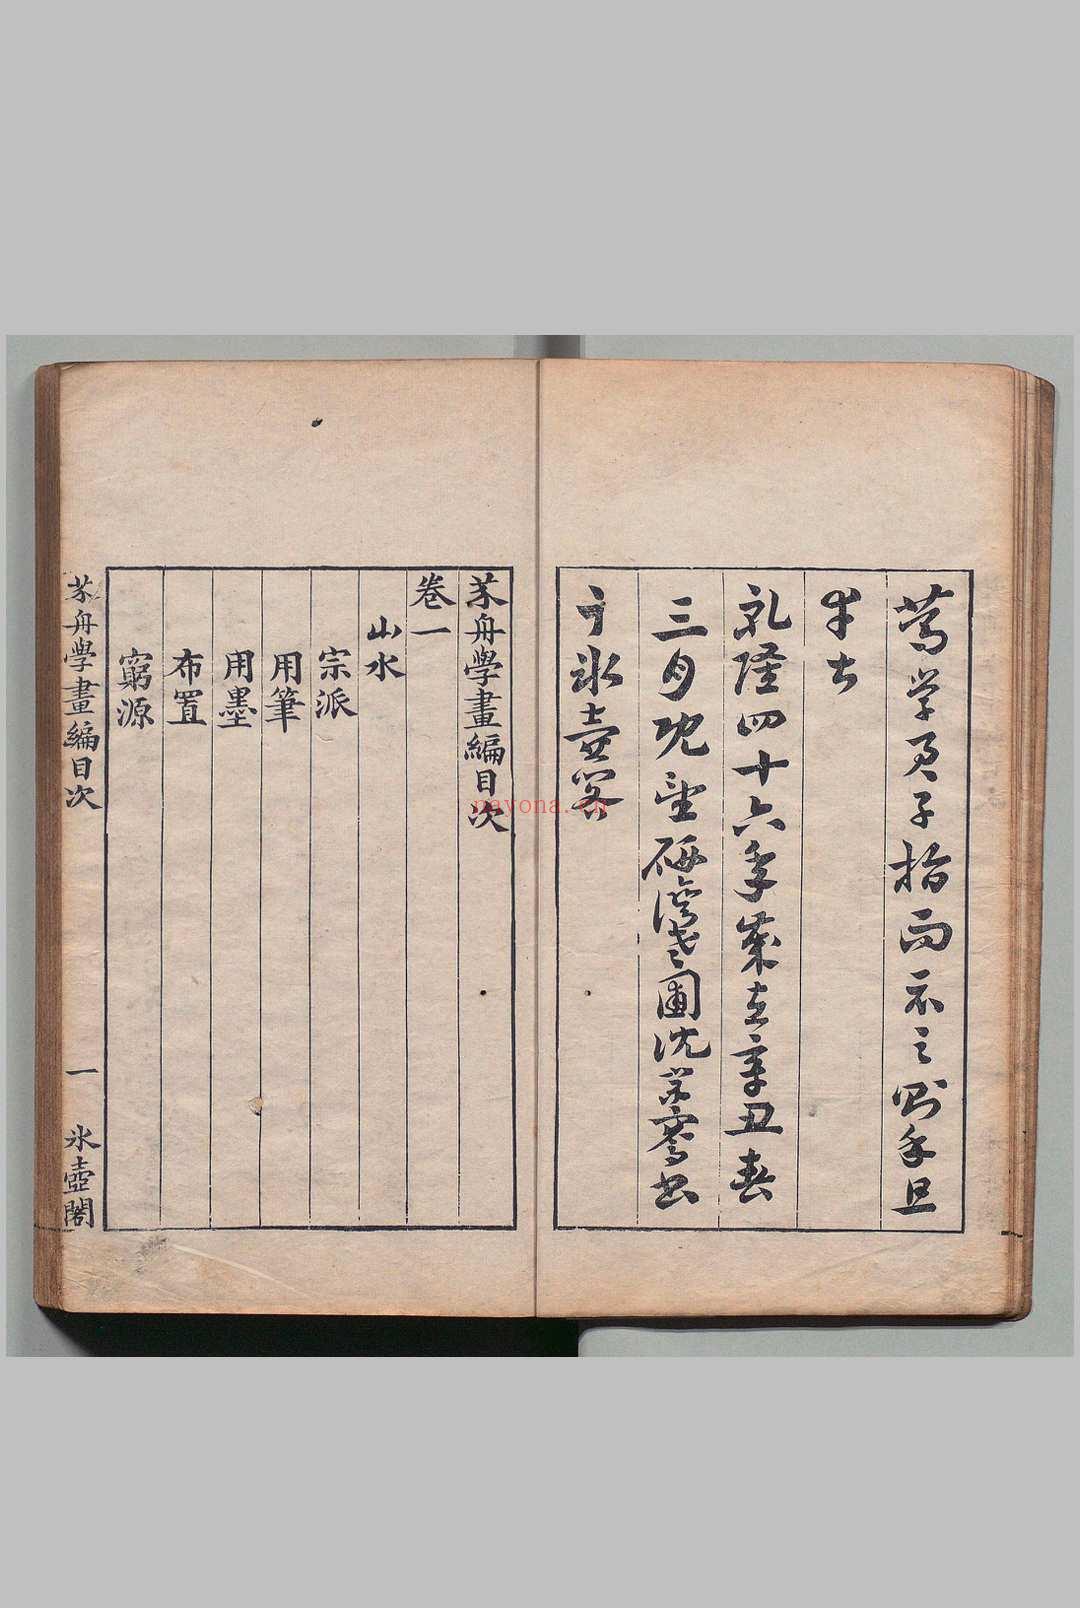 学君子指而示之則
乾隆四十六年歲在辛丑春
三月既望研灣老圃沈宗騫書
于氷壺閣
芥舟學畫編目次
卷一
山水
宗派
用筆
用墨
布置
窮源
芥舟學畫編目次 一 氷壺閣
nayona.cn